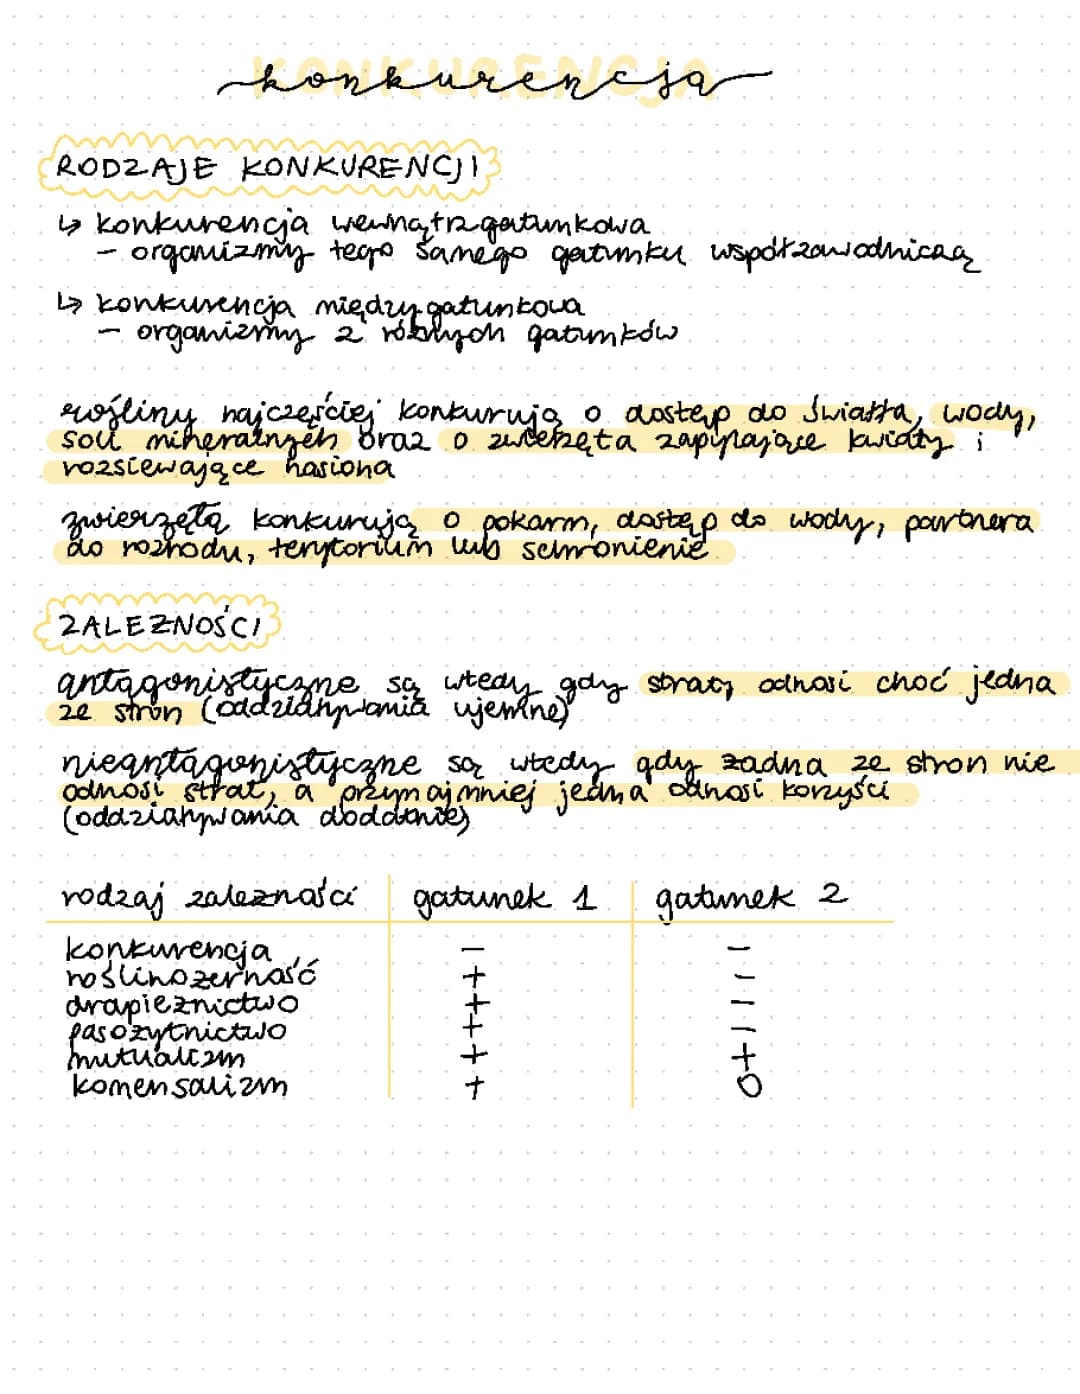 konkurencja
RODZAJE KONKURENCJI
↳ konkurencja wewnątrzgatunkowa
- organizmy tego samego gatunku współzawodniczą
↳ konkurencja międzygatunkowa
- organizmy 2 różnych gatunków
rośliny najczęściej konkurują o dostęp do światła, wody,
soli mineralnych oraz o zwierzęta zapylające kwiaty i
rozsiewające nasiona
zwierzęta konkurują o pokarm, dostęp do wody, partnera
do rozrodu, terytorium lub schronienie.
ZALEŻNOŚCI
antagonistyczne są wtedy gdy straty odnosi choć jedna
ze stron (oddziaływania ujemne)
nieantagonistyczne są wtedy gdy żadna ze stron nie
odnosi strat, a przynajmniej jedna odnosi korzyści
(oddziaływania dodatnie)
rodzaj zależności gatunek 1 gatunek 2
konkurencja - -
roślinożerność + -
drapieżnictwo + -
pasożytnictwo + -
mutualizm + +
komensalizm + 0